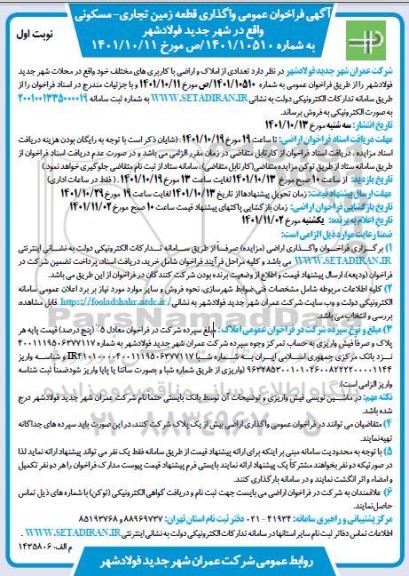 آگهی فراخوان عمومی واگذاری قطعه زمین تجاری-مسکونی
واقع در شهر جدید فولادشهر
به شماره ۱۴۰۱/۱۰۵۱۰/ص مورخ ۱۴۰۱/۱۰/۱۱
نوبت اول
شرکت عمران شهر جدید فولادشهر در نظر دارد تعدادی از املاک و اراضی با کاربری های مختلف خود واقع در محلات شهر جدید
فولادشهر را از طریق فراخوان عمومی به شماره ۱۴۰۱/۱۰۵۱۰/ص مورخ ۱۴۰۱/۱۰/۱۱ و با جزئیات مندرج در اسناد فراخوان را از
طریق سامانه تدارکات الکترونیکی دولت به نشانی WWW.SETADIRAN.IR به شماره ثبت سامانه
به صورت الکترونیکی به فروش برساند.
تاریخ انتشار: سه شنبه مورخ ۱۴۰۱/۱۰/۱۳
مهلت دریافت اسناد فراخوان اراضی: تا ساعت ۱۹ مورخ ۱۴۰۱/۱۰/۱۹ (شایان ذکر است با توجه به رایگان بودن هزینه دریافت
اسناد مزایده، دریافت اسناد فراخوان از کارتابل متقاضی در زمان مقرر الزامی می باشد و در صورت عدم دریافت اسناد فراخوان از
طریق سامانه ستاد از طریق توکن مزایده متقاضی (کارتابل متقاضی)، سامانه ستاد از ثبت نام متقاضی جلوگیری خواهد نمود)
تاریخ بازدید: از ساعت ۱۰ صبح مورخ ۱۴۰۱/۱۰/۱۳ لغایت ساعت ۱۳ مورخ ۱۴۰۱/۱۰/۲۹ (فقط در ساعات اداری)
مهلت ارسال پیشنهاد قیمت: زمان تحویل پیشنهادها از تاریخ ۱۴۰۱/۱۰/۱۳ لغایت ساعت ۱۹ مورخ ۱۴۰۱/۱۰/۲۹
تاریخ بازگشایی فراخوان اراضی: زمان بازگشایی پاکتهای پیشنهاد قیمت ساعت ۱۰ صبح مورخ ۱۴۰۱/۱۱/۰۲
تاریخ اعلام به برنده: یکشنبه مورخ ۱۴۰۱/۱۱/۰۲
ضمنا رعایت موارد ذیل الزامی است:
۱) برگزاری فراخوان واگذاری اراضی (مزایده) صرفاً از طریق سامانه تدارکات الکترونیکی دولت به نشانی اینترنتی
WWW.SETADIRAN.IR می باشد و کلیه مراحل فرآیند فراخوان شامل خرید، دریافت اسناد، پرداخت تضمین شرکت در
فراخوان (ودیعه)، ارسال پیشنهاد قیمت و اطلاع از وضعیت برنده بودن شرکت کنندگان در فراخوان از این طریق می باشد.
۲) کلیه اطلاعات مربوطه شامل مشخصات فنی، ضوابط شهرسازی، نحوه فروش و سایر موارد مورد نیاز بر برد اعلان عمومی سامانه
الکترونیکی دولت و وب سایت شرکت عمران شهر جدید فولادشهر به نشانی http://fooladshahr.ntdc.ir/ قابل مشاهده
بررسی و انتخاب می باشد.
۳) مبلغ و نوع سپرده شرکت در فراخوان عمومی املاک: مبلغ سپرده شرکت در فراخوان معادل ۵٪ (پنج درصد) قیمت پایه هر
پلاک و صرفا فیش واریزی به حساب تمرکز وجوه سپرده شرکت عمران شهر جدید فولادشهر به شماره
نزد بانک مرکزی جمهوری اسلامی ایران به شماره شبا و شناسه واریز
واریزی از طریق شماره شبا و بصورت ساتنا یا پایا واریز شود ضمنا ثبت شناسه
واریز الزامی است).
نکته مهم: در ماشین نویسی فیش واریزی و توضیحات آن توسط بانک بایستی حتما نام شرکت عمران شهر جدید فولادشهر درج
شده باشد.
۴) متقاضیان می توانند در فراخوان عمومی واگذاری اراضی بیش از یک پلاک شرکت کنند، در این صورت باید سپرده های جداگانه
تهیه نمایند.
۵) با توجه به محدودیت سامانه مبنی بر اینکه برای ارائه پیشنهاد قیمت از طریق سامانه فقط یک نفر می تواند پیشنهاد ارائه نماید لذا
در صورتیکه دو نفر بخواهند مشترکاً یک پیشنهاد ارائه نمایند بایستی فرم پیشنهاد قیمت پیوست مدارک فراخوان را هر دو نفر تکمیل
و امضاء و اثر انگشت نمایند و در سامانه بارگذاری کنند.
۶) علاقمندان به شرکت در فراخوان اراضی می بایست جهت ثبت نام و دریافت گواهی الکترونیکی (توکن) با شماره های ذیل تماس
حاصل نمایند.
مرکز پشتیبانی و راهبری سامانه: ۴۱۹۳۴ - ۰۲۱ دفتر ثبت نام استان تهران: ۸۸۹۶۹۷۳۷ و ۸۵۱۹۳۷۶۸
اطلاعات تماس دفاتر ثبت نام سایر استانها در سامانه تدارکات الکترونیکی دولت به نشانی اینترنتی WWW.SETADIRAN.IR
م الف: ۱۴۳۵۸۰۶
روابط عمومی شرکت عمران شهر جدید فولادشهر